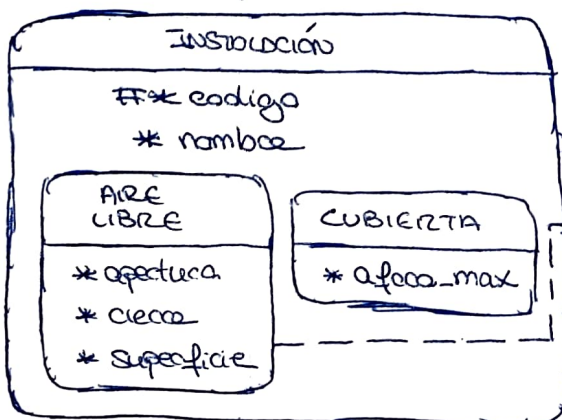 INSTALACIÓN
#* codigo
* nombre
AIRE
LIBRE
* apertura
* cierre
* superficie
CUBIERTA
* aforo_max